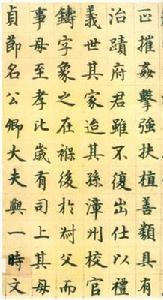 正摧姦擊強扶植善類具有
治蹟府君雖不復出仕以種
義世其家其孫漳州校官
鑄字象之在褓後於叔父而
事母至孝比歲有司上其母
貞節名公卿大夫與一時文